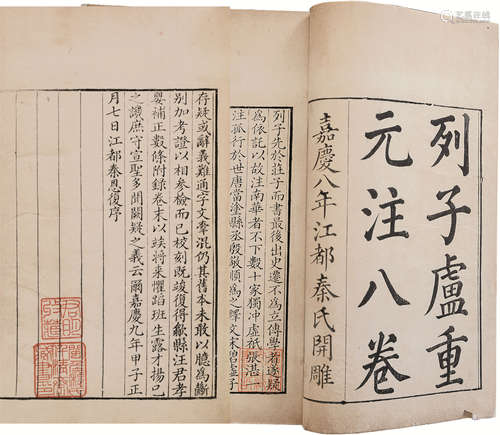 列子盧重
元注八卷
嘉慶八年江都秦氏開雕
列子先於莊子而書最後出史遷不為立傳學者遂疑
為依託以故注南華者不下數十家獨沖虛祇張湛一
注孤行於世唐當塗縣丞殷敬順為之釋文宋
存疑或辭義難通字文舛混仍其舊本未敢以臆為斷
別加考證以相參檢而已校刻既竣復得歙縣汪君孝
嬰補正數條附錄卷末以竢將來懼蹈班生露才揚己
之譏庶守宣聖多聞闕疑之義云爾嘉慶九年甲子正
月七日江都秦恩復序